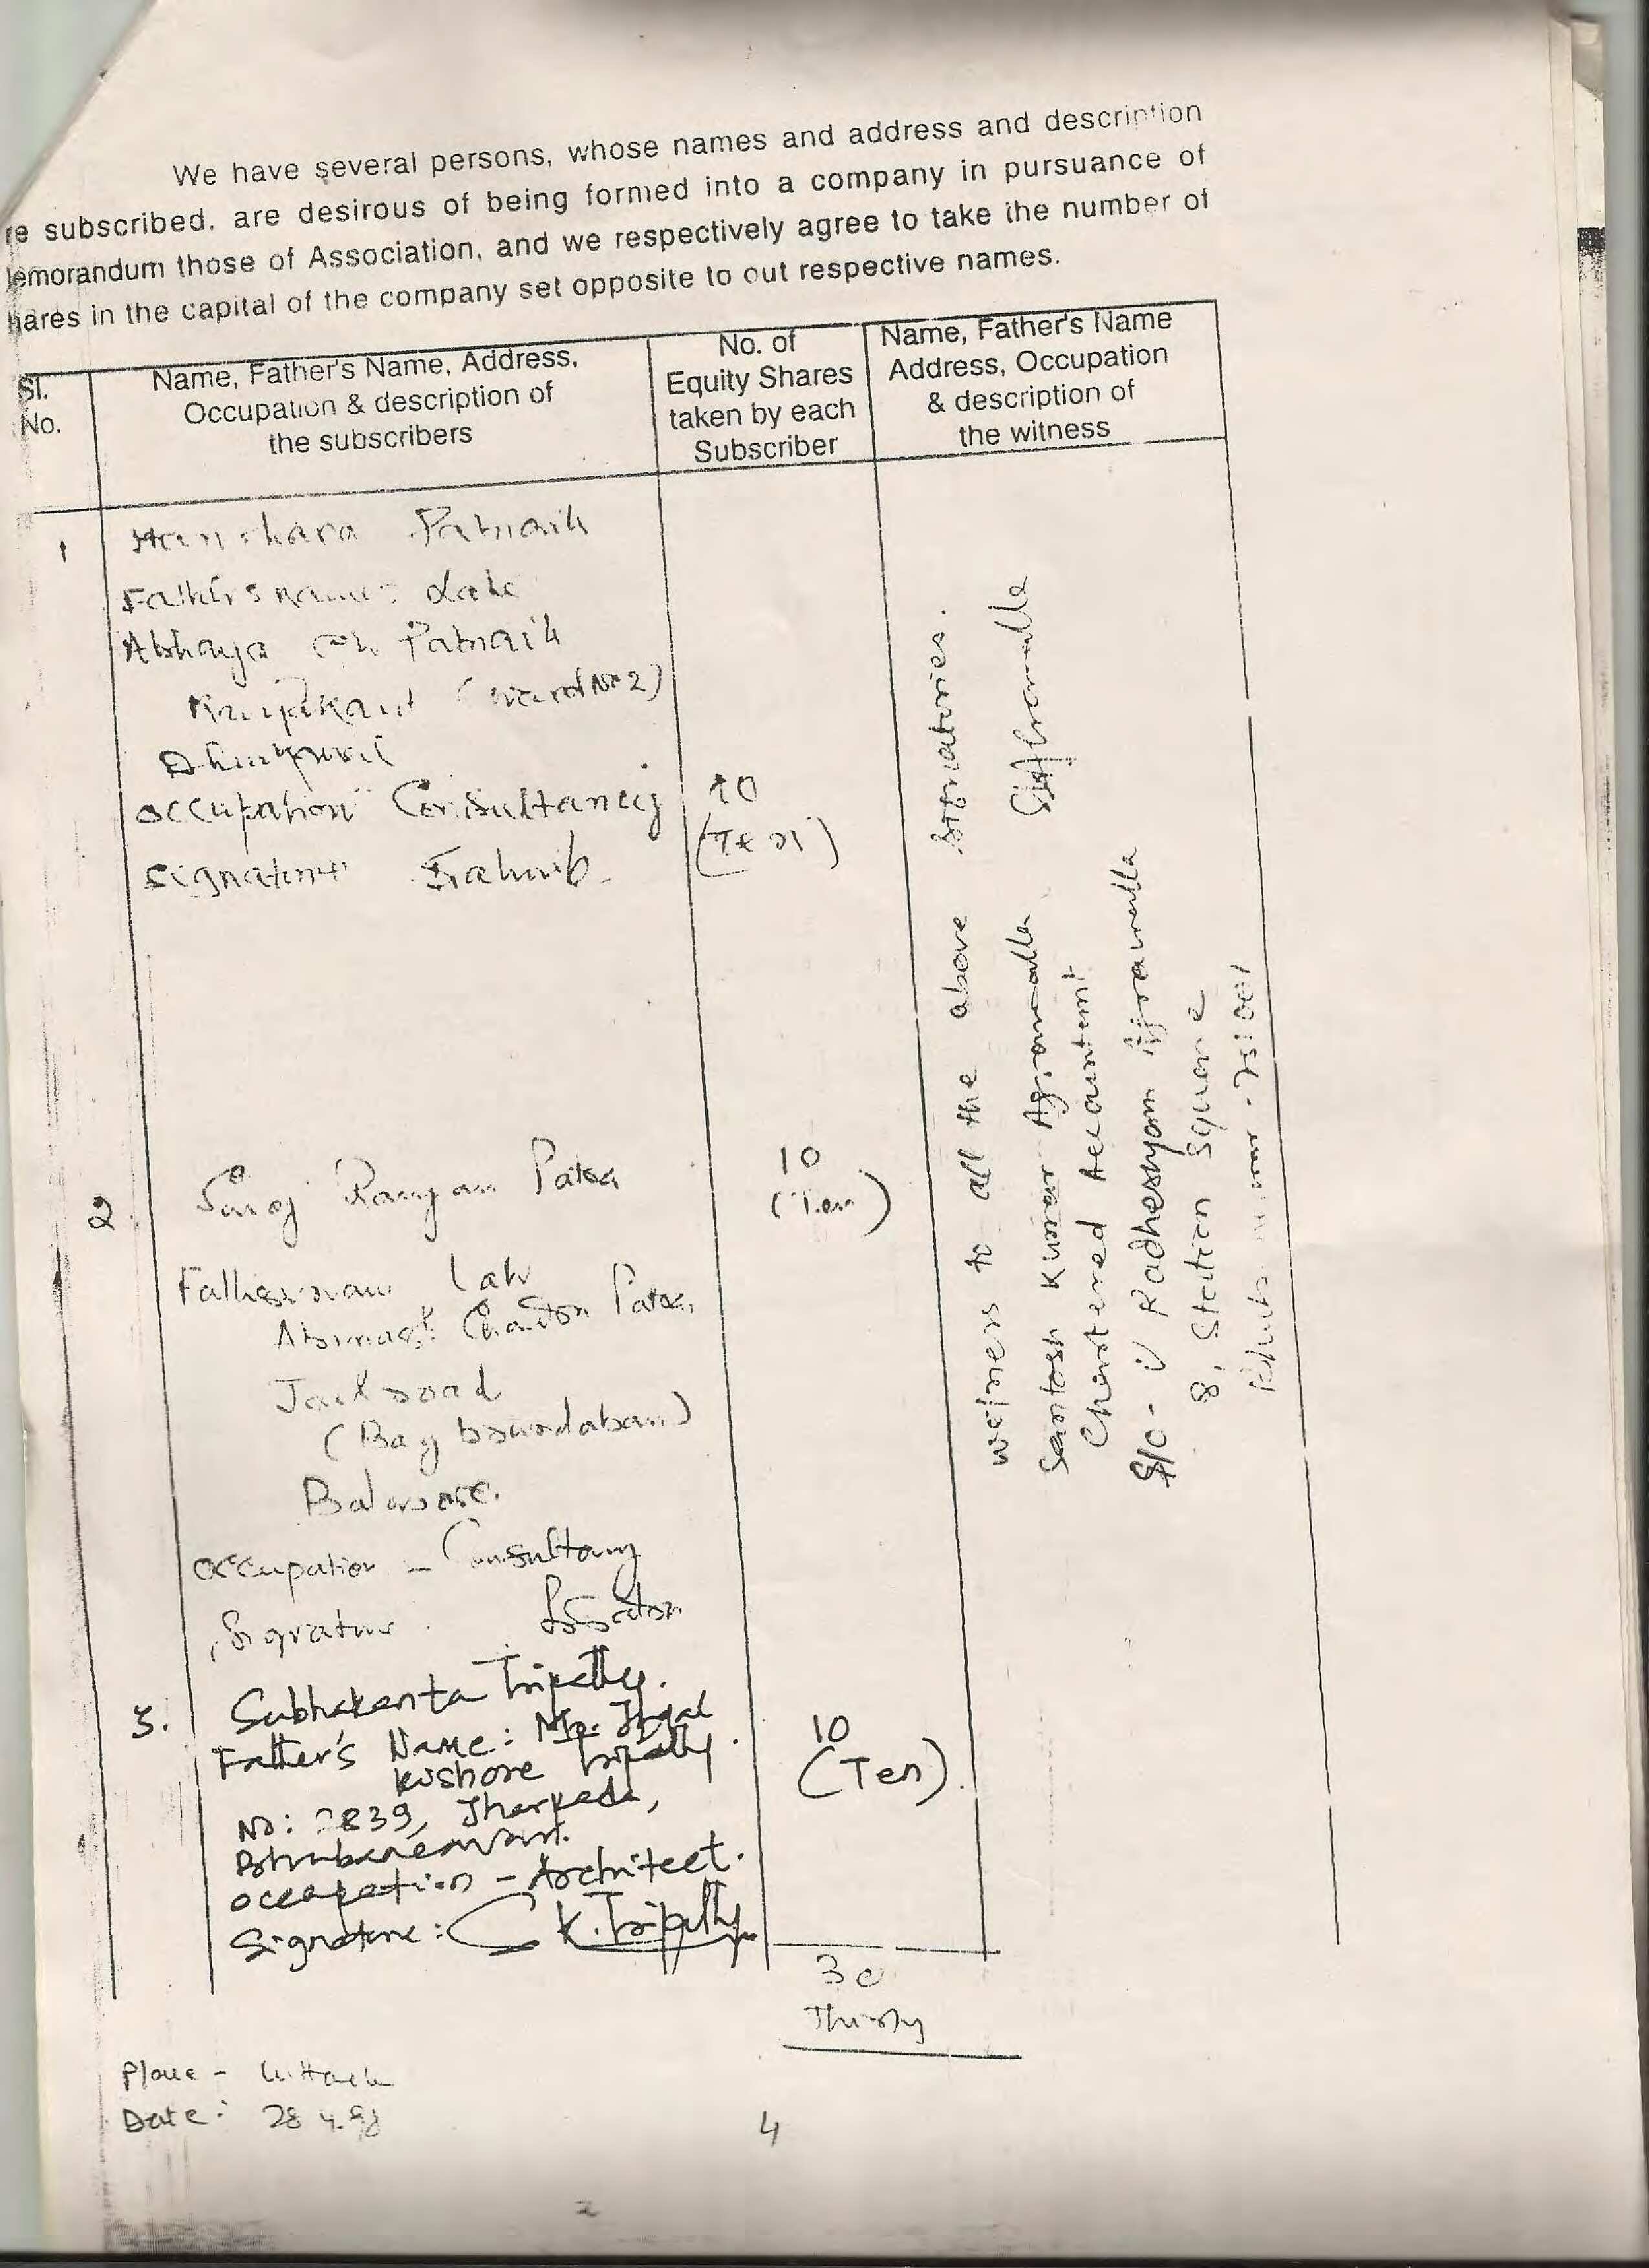 We have several persons, whose names and address and description
re subscribed, are desirous of being formed into a company in pursuance of
lemorandum those of Association, and we respectively agree to take the number of
hares in the capital of the company set opposite to out respective names.
Sl.
No.
Name, Father's Name, Address,
Occupation & description of
the subscribers
No. of
Equity Shares
taken by each
Subscriber
Name, Father's Name
Address, Occupation
& description of
the witness
1
Patnaik
Father's name: Late
Abhaya Ch Patnaik
(Ward No 2)
Occupation Consultancy
Signature
10
(Ten)
2
Saroj Ranjan Patra
10
(Ten)
Father's name Late
Charan Patra,
Jail road
(Bag brundaban)
Balasore.
Occupation - Consultancy
Signature
3.
Subhakanta Tripathy.
Father's Name: Mr. Jugal
Kishore Tripathy.
No: 2839, Jharpada,
Bhubaneswar.
Occupation - Architect.
Signature: S K. Tripathy
10
(Ten).
30
Thirty
witness to all the above signatories.
Santosh Kumar Agrawalla
Chartered Accountant
S/O - Radheshyam Agrawalla
8, Station Square
Bhubaneswar - 751001
Place - Cuttack
Date: 28.4.98
4